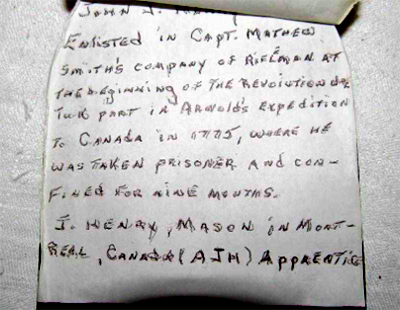 JOHN J.
ENLISTED IN CAPT. MATHEW
SMITH'S COMPANY OF RIFLEMAN AT
THE BEGINNING OF THE REVOLUTION &
TUK PART IN ARNOLD'S EXPEDITION
TO CANADA IN 1775, WHERE HE
WAS TAKEN PRISONER AND CON-
FINED FOR NINE MONTHS.
J. HENRY, MASON IN MONT-
REAL, CANADA (AJH) APPRENTICE